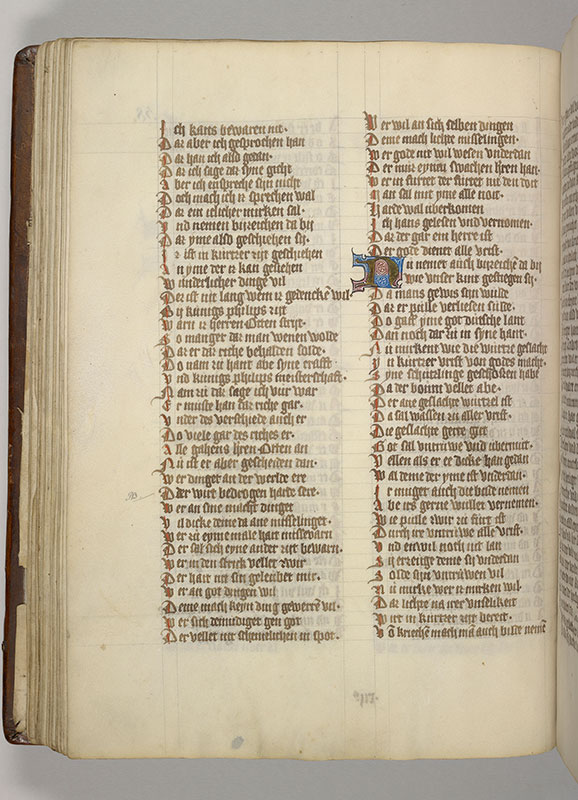 Ich kans bewaren nit.
Dar aber ich gesprochen han
Dar han ich also getan.
Dar ich sage dar syne gicht
Aber ich enspreche sijn nicht
Doch mach ich is sprechen wal
Dar ein ielicher mirken sal
Vnd nemen birzeichen da bij
Dar yme also geschiehen sij.
Ir ist in kurtzer zijt geschiehen
An yme der iz kan gesiehen
Winderlicher dinge vil
Der ist nit lang wem iz gedencke wil
Bij kunigs philips zijt
Warn iz herren Otten strijt.
So manger dar man wenen wolde
Dar er dar riche behalden solde.
Do nam zu hant abe syne crafft
Vnd kunigs philips meisterschafft.
Nam zu dar sage ich vur war
Er muste han dar riche gar.
Vnder des verschiede auch er
Do viele gar des riches er.
Alle gahens hren Otten an
Nu ist er aber gescheiden dan.
Wer dinget an der werlde ere
Der wirt bedrogen harte sere.
Wer an sine macht dinget
Vil dicke deme da ane misselinget.
Wer zu eyme male hait missevarn
Der sal sich eyne ander zijt bewarn.
Wer in den strick vellet zwir
Der hait nit sin geleubet mir.
Wer an got dingen wil
Deme mach keyn ding gewerre vil.
Wer sich demudiget gen got
Der vellet nit schemelichen in spot.
Wer wil an sich selben dingen
Deme mach lichte misselingen.
Wer gode nit wil wesen vnderdan
Der mus eynen swachen hren han.
Wer in furtet der furtet nit den doit
Man sal mit yme alle noit.
Harde wal uberkomen
Ich hans gelesen vnd vernomen.
Dar der gar ein herre ist
Der gode diener alle vrist.
Nu nemet auch birzeiche da bij
Wie vnser kint gestiegen sij.
Da mans gewis sijn wilde
Dar er pulle verliesen sulde.
Do gaff yme got dutsche lant
Dan noch dar zu in syne hant.
Nu mirkent wie die wurtze geslacht
In kurtzer vrist von godes macht.
Syne schutzlinge geschossen habe
Da der boim vellet abe.
Der ane geslachte wurtzel ist
Da sal wassen zu aller vrist.
Die geslachte gerte git
Got sal vntruwe vnd vbermut.
Vellen als er ee dicke han gedan
Wal deme der yme ist vnderdan.
Ir muget auch die beide nemen
Abe irs gerne wullet vernemen.
Wie pulle wir zu furt ist
Durch ire vntruwe alle vrist.
Vnd enwil noch nit lan
Sij erzeige deme sij vnderdan
Solde sijn vntruwen vil
Nu mirke wer iz mirken wil
Dar lichte na irer vnselikeit
Wirt in kurtzer zijt bereit.
Võ krieche mach mã auch bilde nemē